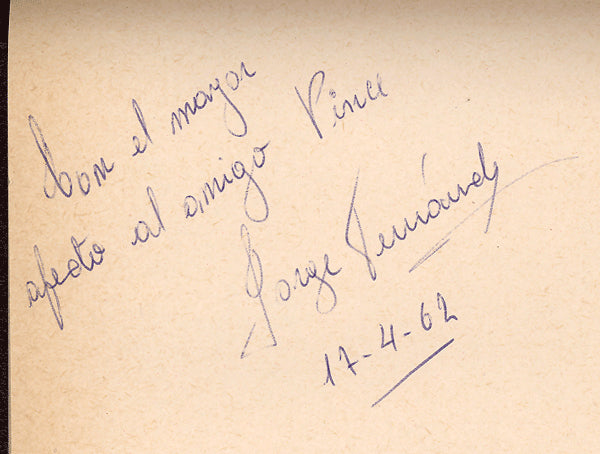 Con el mayor
afecto al amigo Vince
Jorge Fernández
17-4-62